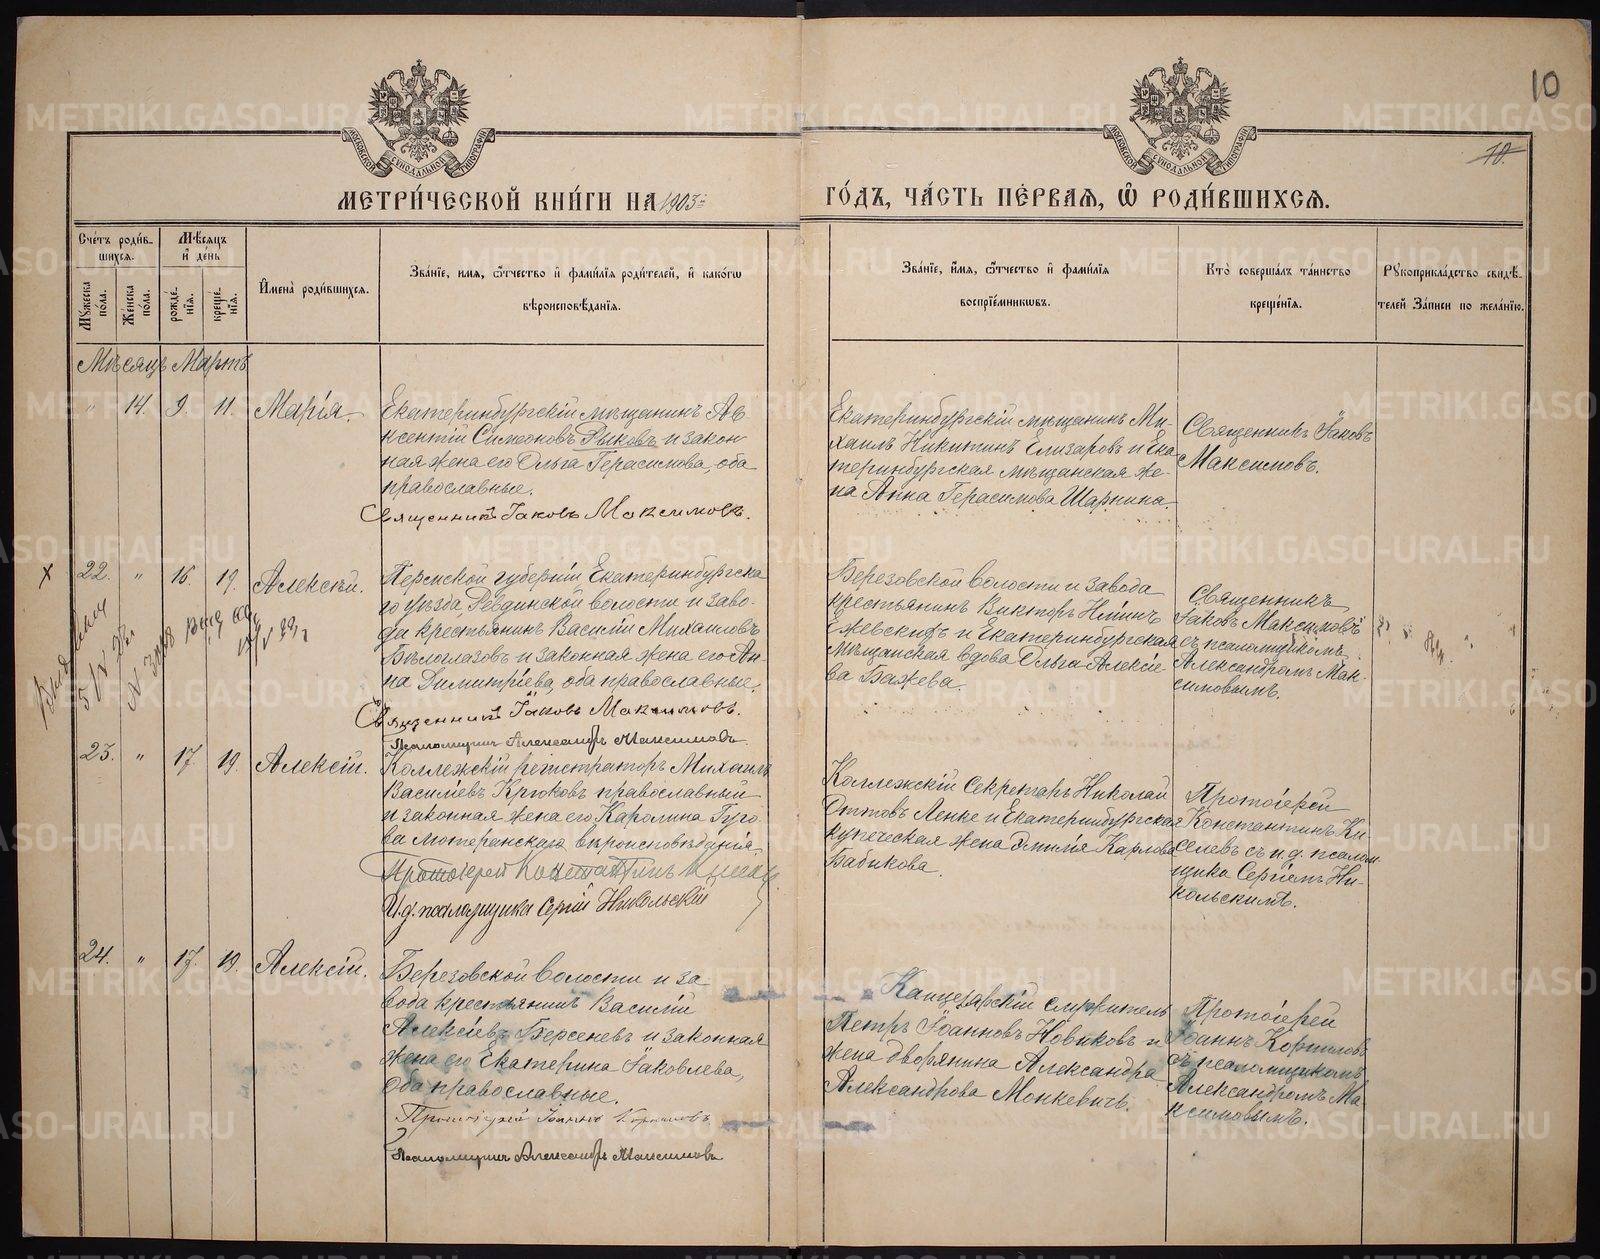 10
10.
МОСКОВСКОЙ СѴНОДАЛЬНОЙ ТИПОГРАФІИ
МОСКОВСКОЙ СѴНОДАЛЬНОЙ ТИПОГРАФІИ
МЕТРИ́ЧЕСКОЙ КНИ́ГИ НА 1903
ГО́ДЪ, ЧА́СТЬ ПЕ́РВАЯ, Ѡ҆ РОДИ́ВШИХСЯ.
Сче́тъ роди́в-
шихся.
Мѣ́сяцъ
и҆ де́нь
Мꙋ́жеска
по́ла.
Же́нска
по́ла.
рожде́-
нїя.
креще́-
нїя.
И҆мена̀ роди́вшихся.
Зва́нїе, и҆́мя, ѻ҆́тчество и҆ фами́лїя роди́телей, и҆ како́гѡ
вѣроисповѣ́данїя.
Зва́нїе, и҆́мя, ѻ҆́тчество и҆ фами́лїя
воспрїе́мникѡвъ.
Кто̀ соверша́лъ та́инство
креще́нїя.
Рꙋкоприкла́дство свидѣ́-
телей За́писи по жела́нїю.
Мѣсяцъ Мартъ
" 14. 9. 11. Марія
Екатеринбургскій мѣщанинъ Ав
ксентій Симеоновъ Рыковъ и закон
ная жена его Ольга Герасимова, оба
православные.
Священникъ Іаковъ Максимовъ.
Екатеринбургскій мѣщанинъ Ми-
хаилъ Никитинъ Елизаровъ и Ека
теринбургская мѣщанская же-
на Анна Герасимова Шарнина.
Священникъ Іаковъ
Максимовъ.
х 22. " 16. 19. Алексѣй.
Пермской губерніи, Екатеринбургска
го уѣзда Ревдинской волости и заво-
да крестьянинъ Василій Михаиловъ
Бѣлоглазовъ и законная жена его Ан-
на Димитріева, оба православные.
Священникъ Іаковъ Максимовъ.
Псаломщикъ Александръ Максимовъ.
Березовской волости и завода
крестьянинъ Викторъ Ниминъ
Ежевскихъ и Екатеринбургская
мѣщанская вдова Ольга Алексіе-
ва Бажева.
Священникъ
Іаковъ Максимовъ
съ псаломщикомъ
Александромъ Мак-
симовымъ.
23. " 17. 19. Алексій.
Коллежскій регистраторъ Михаилъ
Василіевъ Крюковъ православный
и законная жена его Каролина Гуго-
ва лютеранскаго вѣроисповѣданія.
Протоіерей Константинъ
И.д. псаломщика Сергій Никольскій
Коллежскій Секретарь Николай
Оттовъ Ленке и Екатеринбургская
купеческая жена Эмилія Карлова
Бабикова.
Протоіерей
Константинъ Ки-
селевъ съ и.д. псалом
щика Сергіемъ Ни-
кольскимъ.
24. " 17. 19. Алексій.
Березовской волости и за-
вода крестьянинъ Василій
Алексіевъ Берсеневъ и законная
жена его Екатерина Іаковлева,
оба православные.
Протоіерей Іоаннъ Корниловъ
Псаломщикъ Александръ Максимовъ
Канцелярскій служитель
Петръ Іоанновъ Новиковъ и
жена дворянина Александра
Александрова Монкевичъ.
Протоіерей
Іоаннъ Корниловъ
съ псаломщикомъ
Александромъ Ма-
ксимовымъ.
METRIKI.GASO-URAL.RU